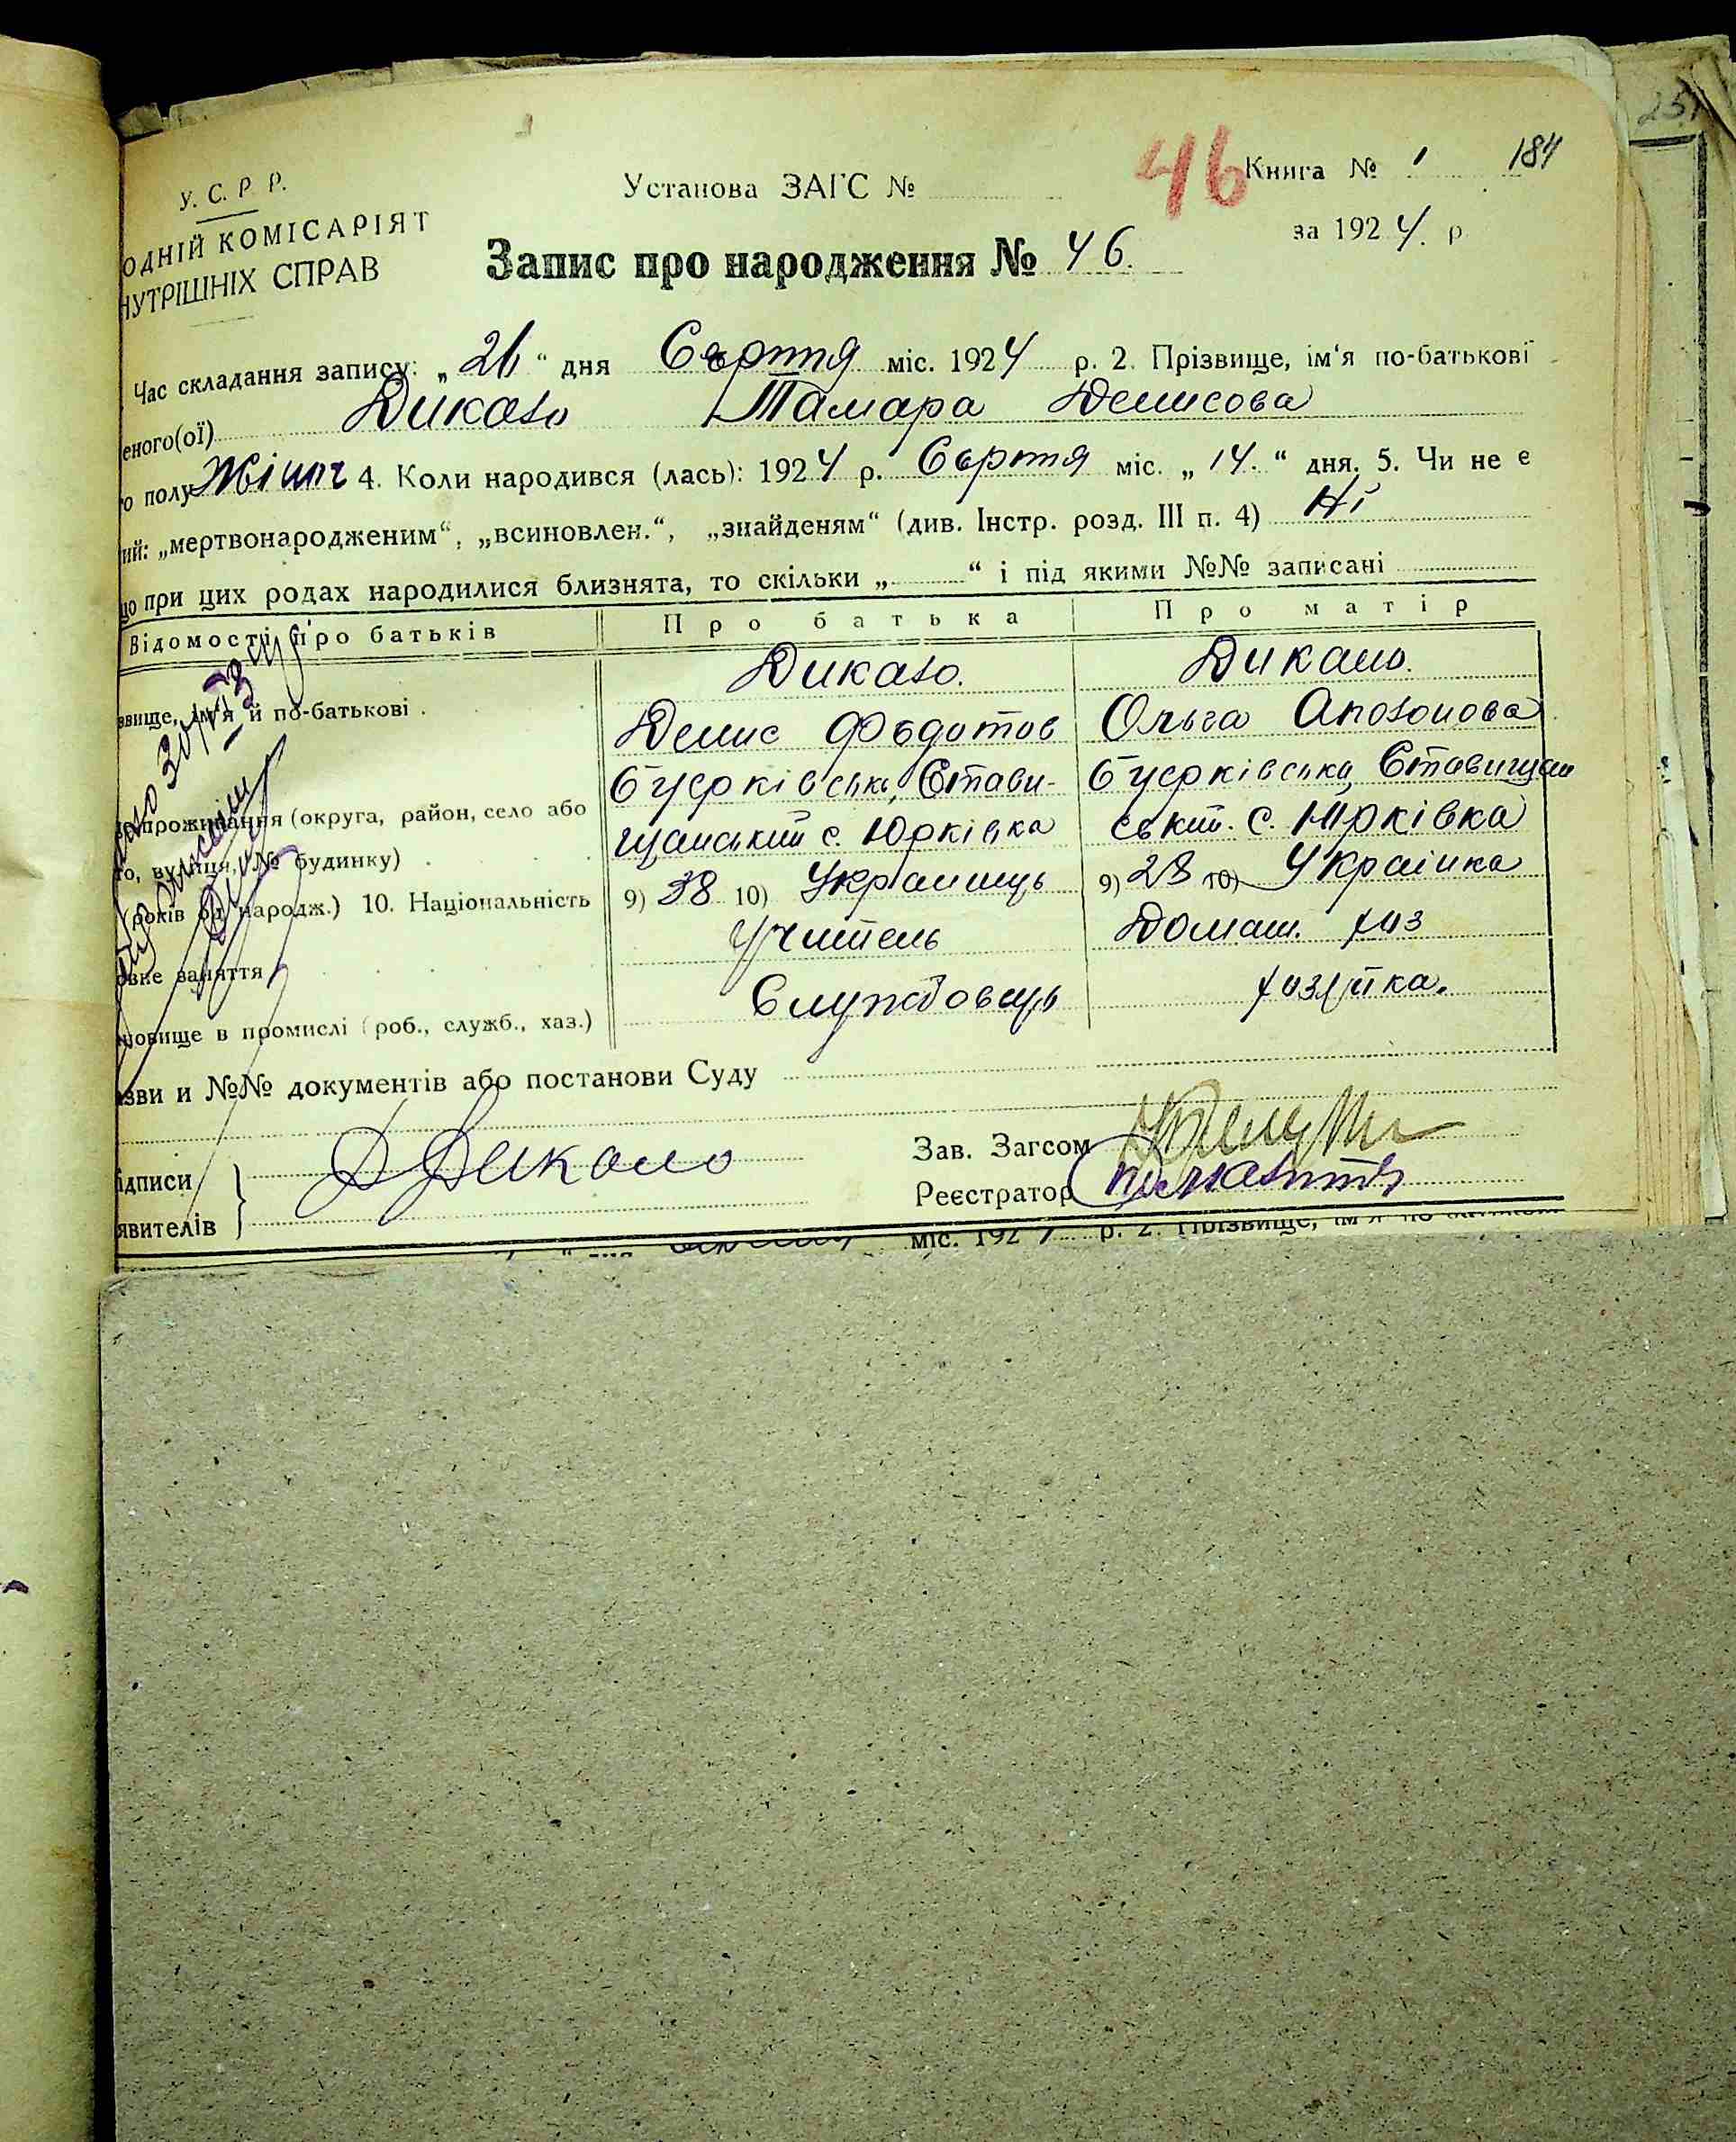 251
У. С. Р. Р.
ОДНІЙ КОМІСАРІЯТ
НУТРІШНІХ СПРАВ
Установа ЗАГС №
46
Книга № 1
184
за 1924. р.
Запис про народження № 46.
Час складання запису: „ 26 “ дня Серпня міс. 1924 р. 2. Прізвище, ім‘я по-батькові
еного(ої) Дикало Тамара Денисова
о полу Жіноч 4. Коли народився (лась): 1924 р. Серпня міс. „ 14. “ дня. 5. Чи не є
ий: „мертвонародженим“, „всиновлен.“, „знайденям“ (див. Інстр. розд. III п. 4) Ні
що при цих родах народилися близнята, то скільки „ “ і під якими №№ записані
Відомості про батьків Про батька Про матір
Дикало. Дикало.
звище, ім‘я й по-батькові . Денис Федотов Ольга Аполонова
Б Церківська, Стави- Б Церківська Ставищан
е проживання (округа, район, село або щанський с. Юрківка ський. с. Юрківка
то, вулиця, № будинку)
(років од народж.) 10. Національність 9) 38 10) Украинець 9) 28 10) Украінка
Учитель Домаш. хаз
овне заняття
Службовець хазяйка.
новище в промислі (роб., служб., хаз.)
зви и №№ документів або постанови Суду
ідписи
явителів
Д Дикало
Зав. Загсом
Реєстратор
міс. 192 р. 2. Прізвище, ім‘я по-батькові